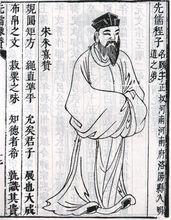 先儒程子
名頤字正叔河南河南府洛陽縣人明
道之弟
宋朱熹贊
規圓矩方 繩直準平 允矣君子 展也大成
布帛之文 菽粟之味 知德者希 孰識其貴